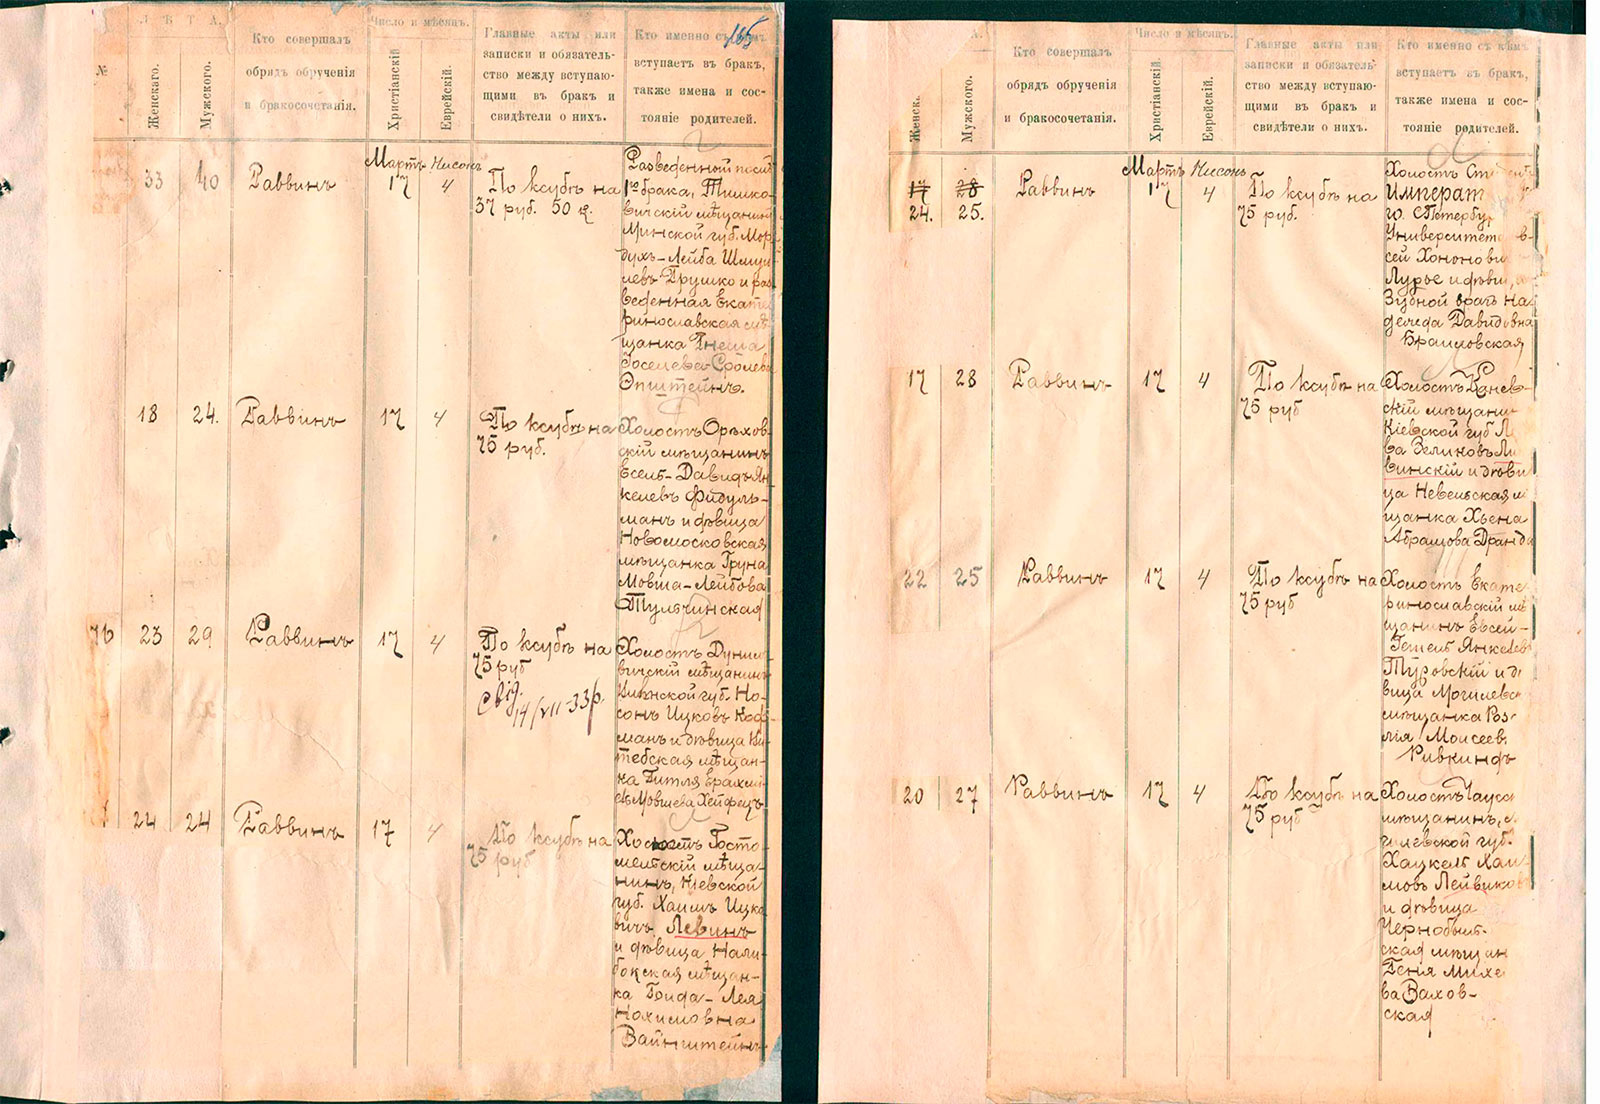 165
ЛѢТА.
Число и мѣсяцъ.
№
Женскаго.
Мужского.
Кто совершалъ
обрядъ обрученія
и бракосочетанія.
Христіанскій
Еврейскій.
Главные акты или
записки и обязатель-
ство между вступаю-
щими въ бракъ и
свидѣтели о нихъ.
Кто именно съ кѣмъ
вступаетъ въ бракъ,
также имена и сос-
тояніе родителей.
Мартъ Нисонъ
33 40 Раввинъ 17 4
По ксубѣ на
37 руб. 50 к.
Разведенный послѣ
1го брака, Тимко-
вичскій мѣщанинъ
Минской губ. Мор
духъ-Лейба Шмуи
левъ Грушко и раз
веденная Екате
ринославская мѣ
щанка Гнеша
Іоселева-Сролева
Эпштейнъ.
18 24. Раввинъ 17 4
По ксубѣ на
75 руб.
Холостъ Орѣхов-
скій мѣщанинъ
Есель-Давидъ Ян
келевъ Фидуль-
манъ и дѣвица
Новомосковская
мѣщанка Груна
Мовша-Лейбова
Тульчинская
76 23 29 Раввинъ 17 4
По ксубѣ на
75 руб
свид.
14/VII-33 р.
Холостъ Дуни
вичскій мѣщанинъ
губ. Но-
сонъ Ицковъ Коф
манъ и дѣвица Ви
тебская мѣщан-
ка Гитля
Мовшева Хейфецъ
24 24 Раввинъ 17 4
По ксубѣ на
75 руб
Холостъ Госто-
мельскій мѣща-
нинъ, Кіевской
губ. Хаимъ Ицко
вичъ Левинъ
и дѣвица Нали-
бокская мѣщан-
ка Гоида-Лея
Нохимовна
Вайнштейнъ
А.
Число и мѣсяцъ.
Женск.
Мужского.
Кто совершалъ
обрядъ обрученія
и бракосочетанія.
Христіанскій
Еврейскій.
Главные акты или
записки и обязатель-
ство между вступаю-
щими въ бракъ и
свидѣтели о нихъ.
Кто именно съ кѣмъ
вступаетъ въ бракъ,
также имена и сос-
тояніе родителей.
Мартъ Нисонъ
17 28 Раввинъ 17 4
24. 25.
По ксубѣ на
75 руб.
Холостъ
Императ
го С.Петербу
Университета
сей Хононови
Лурье и дѣви
Зубной врачъ На
дежда Давидовна
Браиловская
17 28 Раввинъ 17 4
По ксубѣ на
75 руб
Холостъ Канев-
скій мѣщанин
Кіевской губ Л
ва Зелиновъ Ли
винскій и дѣви
ца Невельская м
щанка Хьена
Абрамова Дранди
22 25 Раввинъ 17 4
По ксубѣ на
75 руб
Холостъ Екате
ринославскій мѣ
щанинъ Евсей-
Гешель Янкелев
Туровскій и дѣ
вица Могилевс
мѣщанка Роз
лія Моисеев
Ривкиндъ
20 27 Раввинъ 17 4
По ксубѣ на
75 руб
Холостъ Чаусс
мѣщанинъ,
гилевской губ.
Хацкель Хаи
мовъ Лейвиков
и дѣвица
Чернобыль-
ская мѣщан
Геня Михе
ва Ваков-
ская